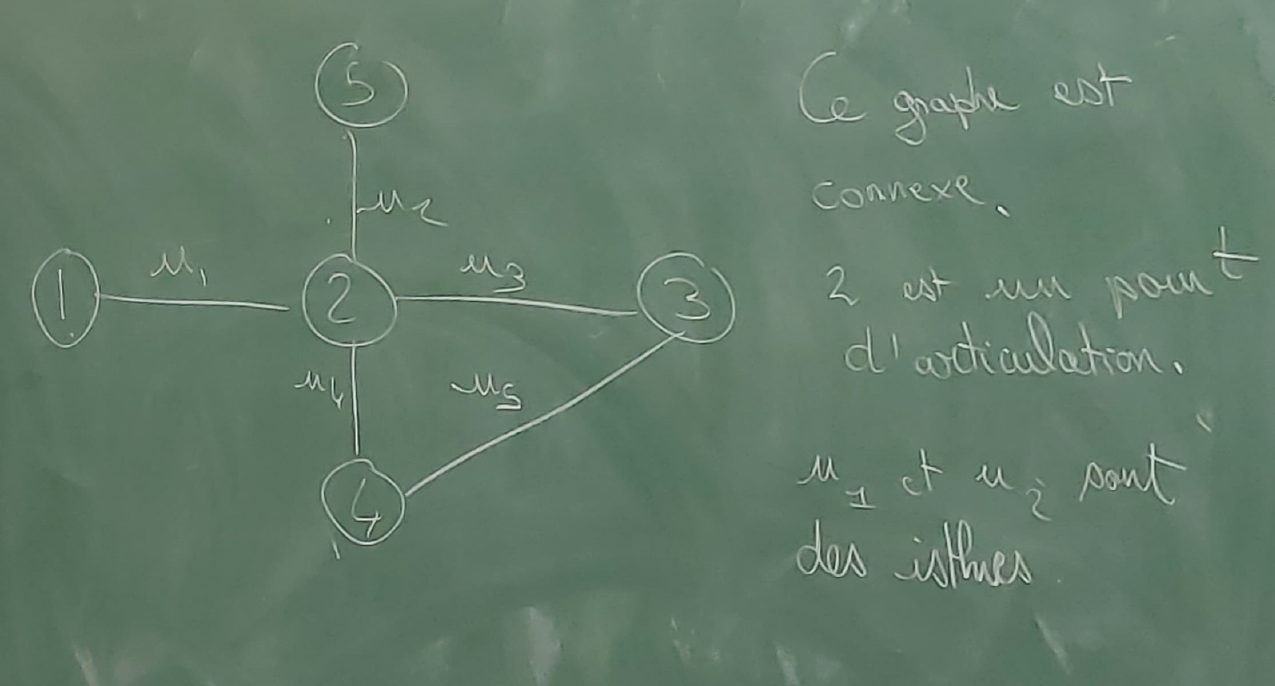 5
u2
u1
u3
1
2
3
u4
u5
4
Ce graphe est
connexe.
2 est un point
d'articulation.
u1 et u2 sont
des isthmes